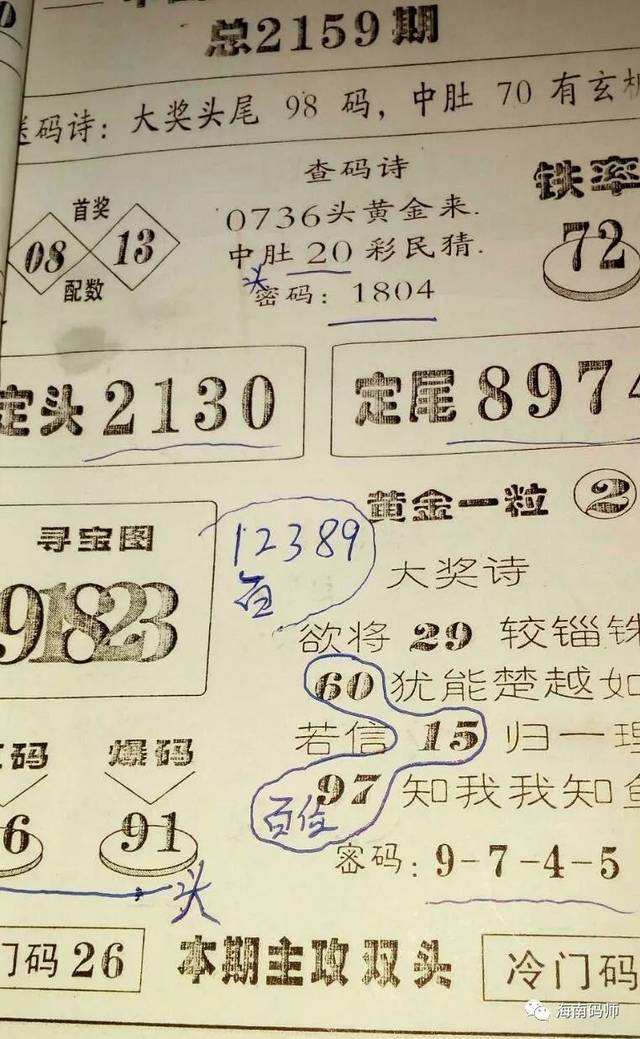 总2159期
送码诗: 大奖头尾 98 码, 中肚 70 有玄机
首奖
08 13
配数
查码诗
0736头黄金来.
中肚 20 彩民猜.
头
密码: 1804
铁率
72
定头 2130
定尾 8974
寻宝图
91823
12389
百
黄金一粒 2
大奖诗
欲将 29 较锱铢
60 犹能楚越如
若信 15 归一理
97 知我我知鱼
百位
密码: 9-7-4-5
码 爆码
6 91
头
门码 26
本期主攻双头
冷门码
海南码师